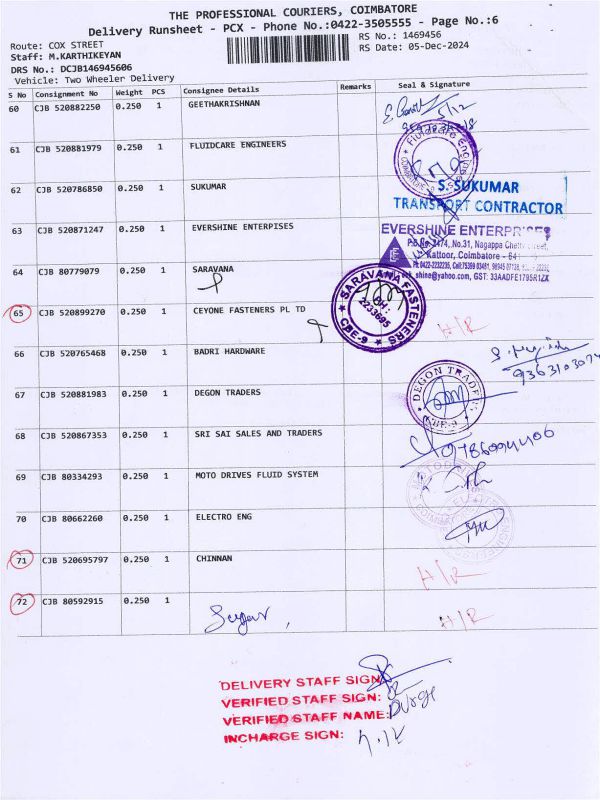 THE PROFESSIONAL COURIERS, COIMBATORE
Delivery Runsheet - PCX - Phone No.:0422-3505555 - Page No.:6
Route: COX STREET
RS No.: 1469456
Staff: M.KARTHIKEYAN
RS Date: 05-Dec-2024
DRS No.: DCJB146945606
Vehicle: Two Wheeler Delivery
S No Consignment No Weight PCS Consignee Details Remarks Seal & Signature
60 CJB 520882250 0.250 1 GEETHAKRISHNAN
61 CJB 520881979 0.250 1 FLUIDCARE ENGINEERS
62 CJB 520786850 0.250 1 SUKUMAR
S. SUKUMAR
TRANSPORT CONTRACTOR
63 CJB 520871247 0.250 1 EVERSHINE ENTERPISES
EVERSHINE ENTERPRISES
No.31, Nagappa Chetty Street,
Kattoor, Coimbatore -
shine@yahoo.com, GST: 33AADFE1795R1ZX
64 CJB 80779079 0.250 1 SARAVANA
SARAVANA FASTENERS
PH:
2233695
CBE-9
65 CJB 520899270 0.250 1 CEYONE FASTENERS PL TD
H/R
66 CJB 520765468 0.250 1 BADRI HARDWARE
67 CJB 520881983 0.250 1 DEGON TRADERS
DEGON TRADERS
CBE-9
68 CJB 520867353 0.250 1 SRI SAI SALES AND TRADERS
69 CJB 80334293 0.250 1 MOTO DRIVES FLUID SYSTEM
70 CJB 80662260 0.250 1 ELECTRO ENG
71 CJB 520695797 0.250 1 CHINNAN
H/R
72 CJB 80592915 0.250 1
H/R
DELIVERY STAFF SIGN:
VERIFIED STAFF SIGN:
VERIFIED STAFF NAME:
INCHARGE SIGN: